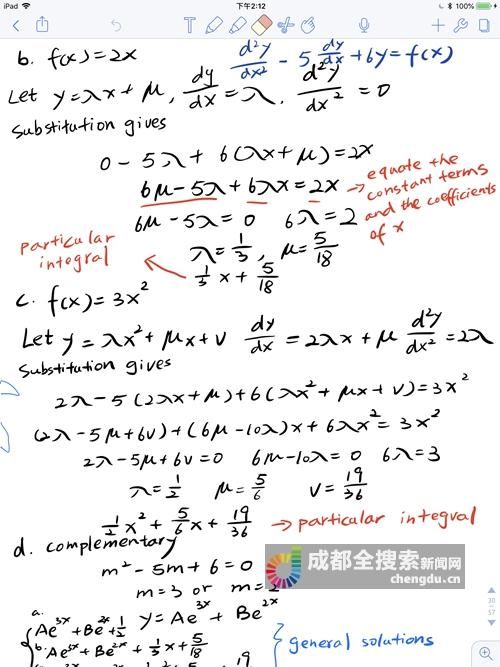 iPad
下午2:12
b. f(x) = 2x
d²y/dx² - 5 dy/dx + 6y = f(x)
Let y = λx + μ, dy/dx = λ, d²y/dx² = 0
Substitution gives
0 - 5λ + 6(λx + μ) = 2x
6μ - 5λ + 6λx = 2x → equate the constant terms and the coefficients of x
6μ - 5λ = 0 6λ = 2
λ = 1/3, μ = 5/18
particular integral ← 1/3 x + 5/18
c. f(x) = 3x²
Let y = λx² + μx + ν dy/dx = 2λx + μ d²y/dx² = 2λ
Substitution gives
2λ - 5(2λx + μ) + 6(λx² + μx + ν) = 3x²
(2λ - 5μ + 6ν) + (6μ - 10λ)x + 6λx² = 3x²
2λ - 5μ + 6ν = 0 6μ - 10λ = 0 6λ = 3
λ = 1/2 μ = 5/6 ν = 19/36
1/2 x² + 5/6 x + 19/36 → particular integral
d. complementary
m² - 5m + 6 = 0
m = 3 or m = 2
y = Ae^3x + Be^2x
a. Ae^3x + Be^2x + 1/2
b. Ae^3x + Be^2x + 1/3 x + 5/18
general solutions
成都全搜索新闻网
chengdu.cn